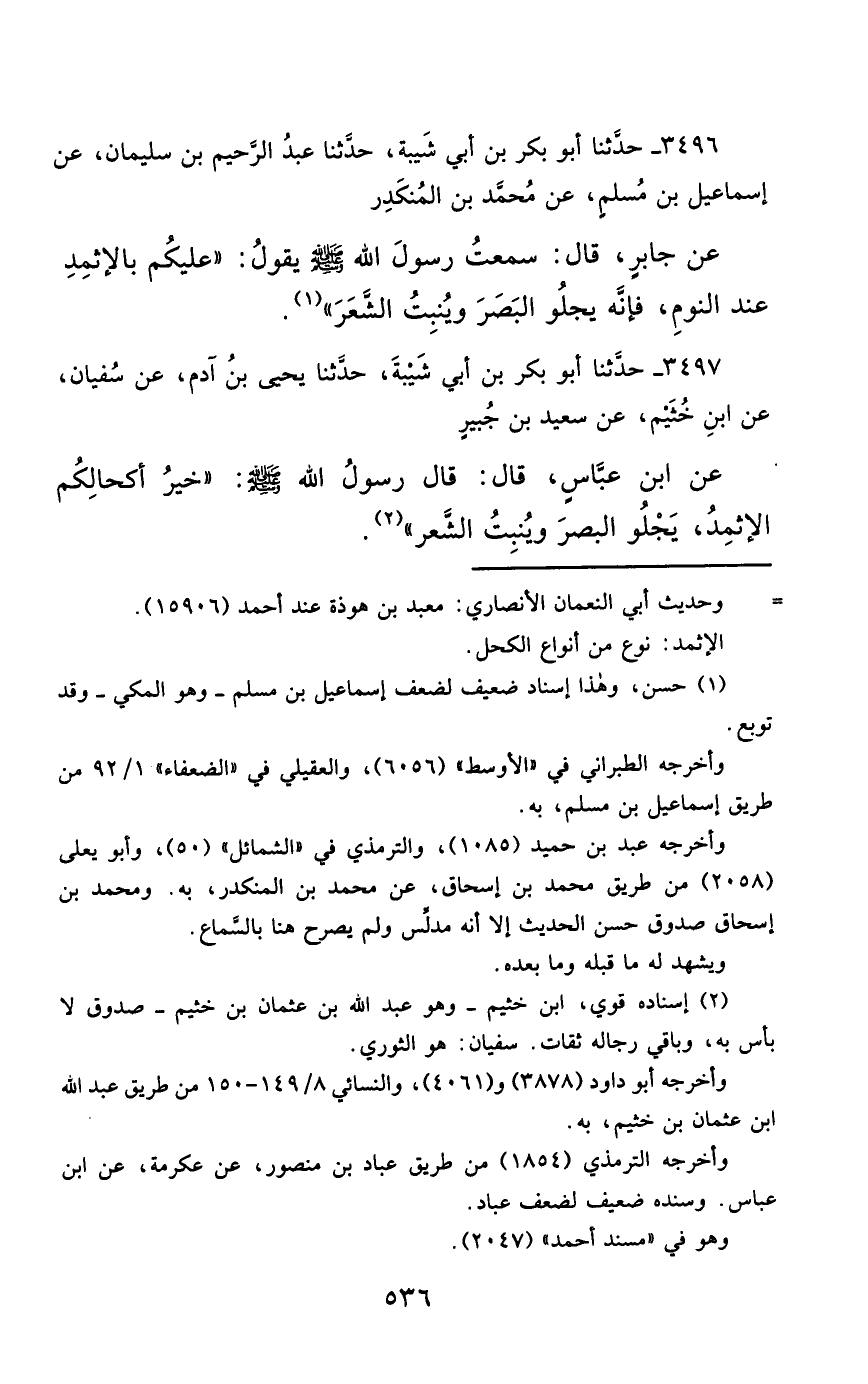 ٣٤٩٦ـ حدَّثنا أبو بكر بن أبي شَيبة، حدَّثنا عبدُ الرَّحيم بن سليمان، عن
إسماعيل بن مُسلمٍ، عن مُحمَّد بن المُنكَدِر
عن جابرٍ، قال: سمعتُ رسولَ الله ﷺ يقولُ: «عليكُم بالإثمِدِ
عند النومِ، فإنَّه يجلُو البَصَرَ ويُنبِتُ الشَّعَرَ»(١).
٣٤٩٧ـ حدَّثنا أبو بكر بن أبي شَيْبةَ، حدَّثنا يحيى بنُ آدم، عن سُفيان،
عن ابنِ خُثَيْم، عن سعيد بن جُبيرٍ
عن ابن عبَّاسٍ، قال: قال رسولُ الله ﷺ: «خيرُ أكحالِكُم
الإثمِدُ، يَجْلُو البصرَ ويُنبِتُ الشَّعر»(٢).
= وحديث أبي النعمان الأنصاري: معبد بن هوذة عند أحمد (١٥٩٠٦).
الإثمد: نوع من أنواع الكحل.
(١) حسن، وهٰذا إسناد ضعيف لضعف إسماعيل بن مسلم ـ وهو المكي ـ وقد
توبع.
وأخرجه الطبراني في «الأوسط» (٦٠٥٦)، والعقيلي في «الضعفاء» ٩٢/١ من
طريق إسماعيل بن مسلم، به.
وأخرجه عبد بن حميد (١٠٨٥)، والترمذي في «الشمائل» (٥٠)، وأبو يعلى
(٢٠٥٨) من طريق محمد بن إسحاق، عن محمد بن المنكدر، به. ومحمد بن
إسحاق صدوق حسن الحديث إلا أنه مدلِّس ولم يصرح هنا بالسَّماع.
ويشهد له ما قبله وما بعده.
(٢) إسناده قوي، ابن خثيم ـ وهو عبد الله بن عثمان بن خثيم ـ صدوق لا
بأس به، وباقي رجاله ثقات. سفيان: هو الثوري.
وأخرجه أبو داود (٣٨٧٨) و(٤٠٦١)، والنسائي ١٤٩/٨-١٥٠ من طريق عبد الله
ابن عثمان بن خثيم، به.
وأخرجه الترمذي (١٨٥٤) من طريق عباد بن منصور، عن عكرمة، عن ابن
عباس. وسنده ضعيف لضعف عباد.
وهو في «مسند أحمد» (٢٠٤٧).
٥٣٦